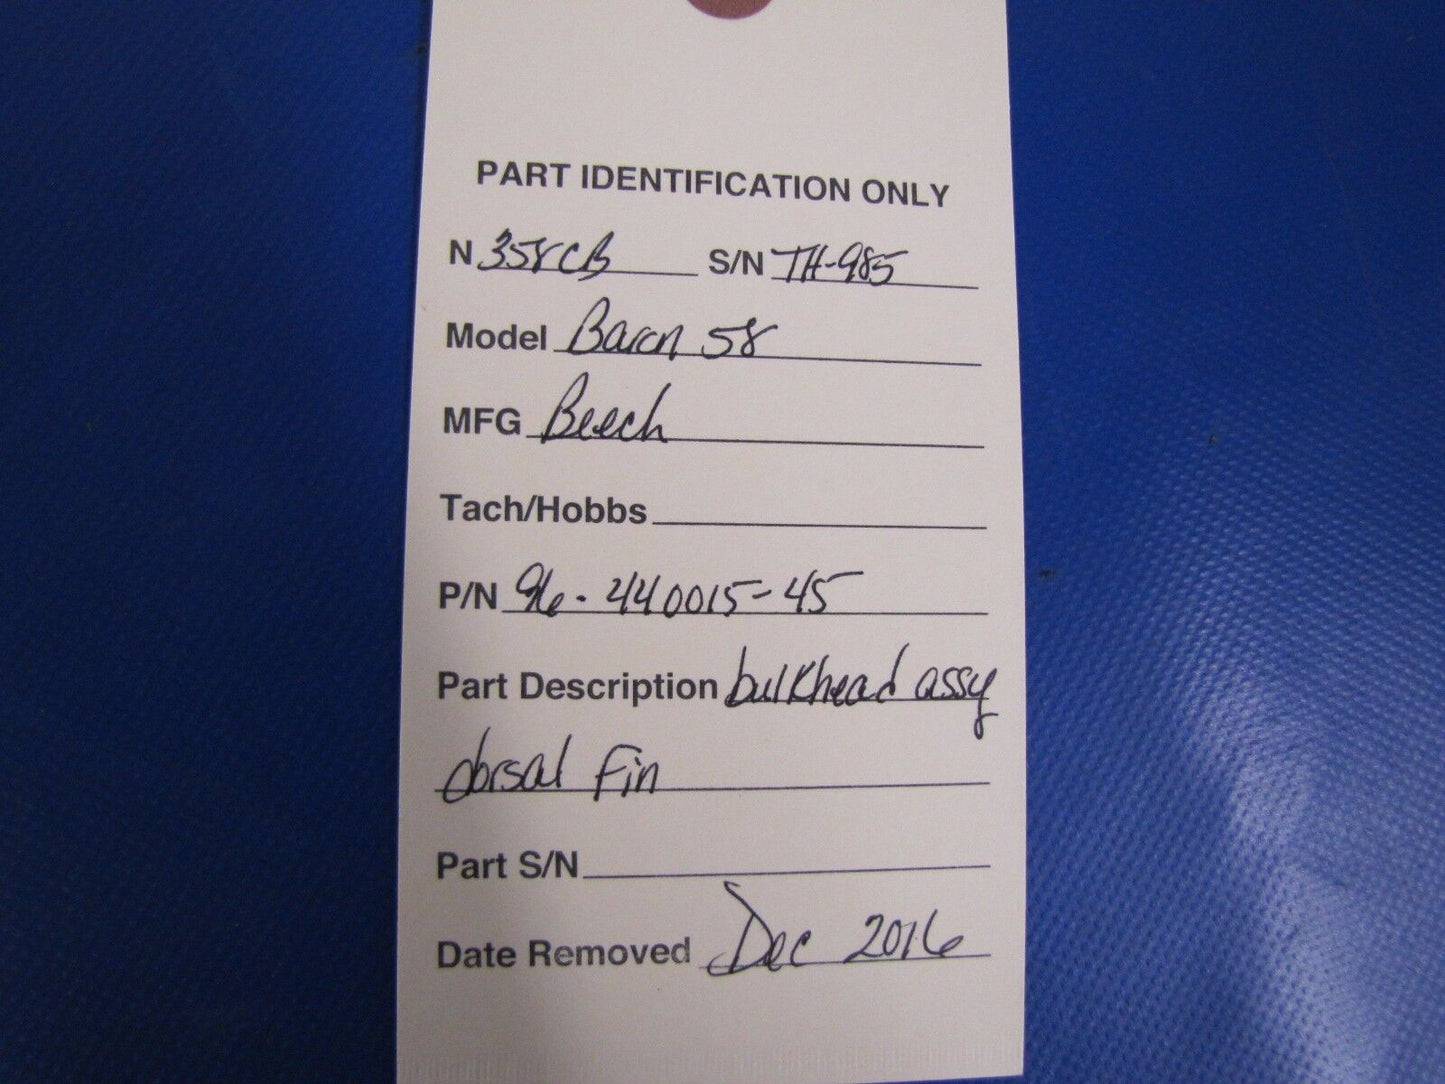 PART IDENTIFICATION ONLY
N 358CB S/N TH-985
Model Baron 58
MFG Beech
Tach/Hobbs
P/N 96-440015-45
Part Description bulkhead assy
dorsal fin
Part S/N
Date Removed Dec 2016